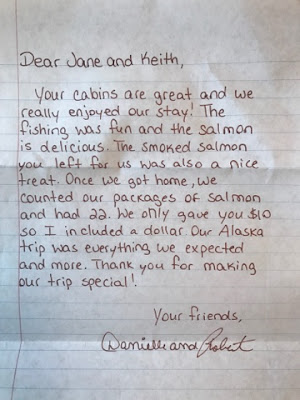 Dear Jane and Keith,
Your cabins are great and we
really enjoyed our stay! The
fishing was fun and the salmon
is delicious. The smoked salmon
you left for us was also a nice
treat. Once we got home, we
counted our packages of salmon
and had 22. We only gave you $10
so I included a dollar. Our Alaska
trip was everything we expected
and more. Thank you for making
our trip special!
Your friends,
Danielle and Robert